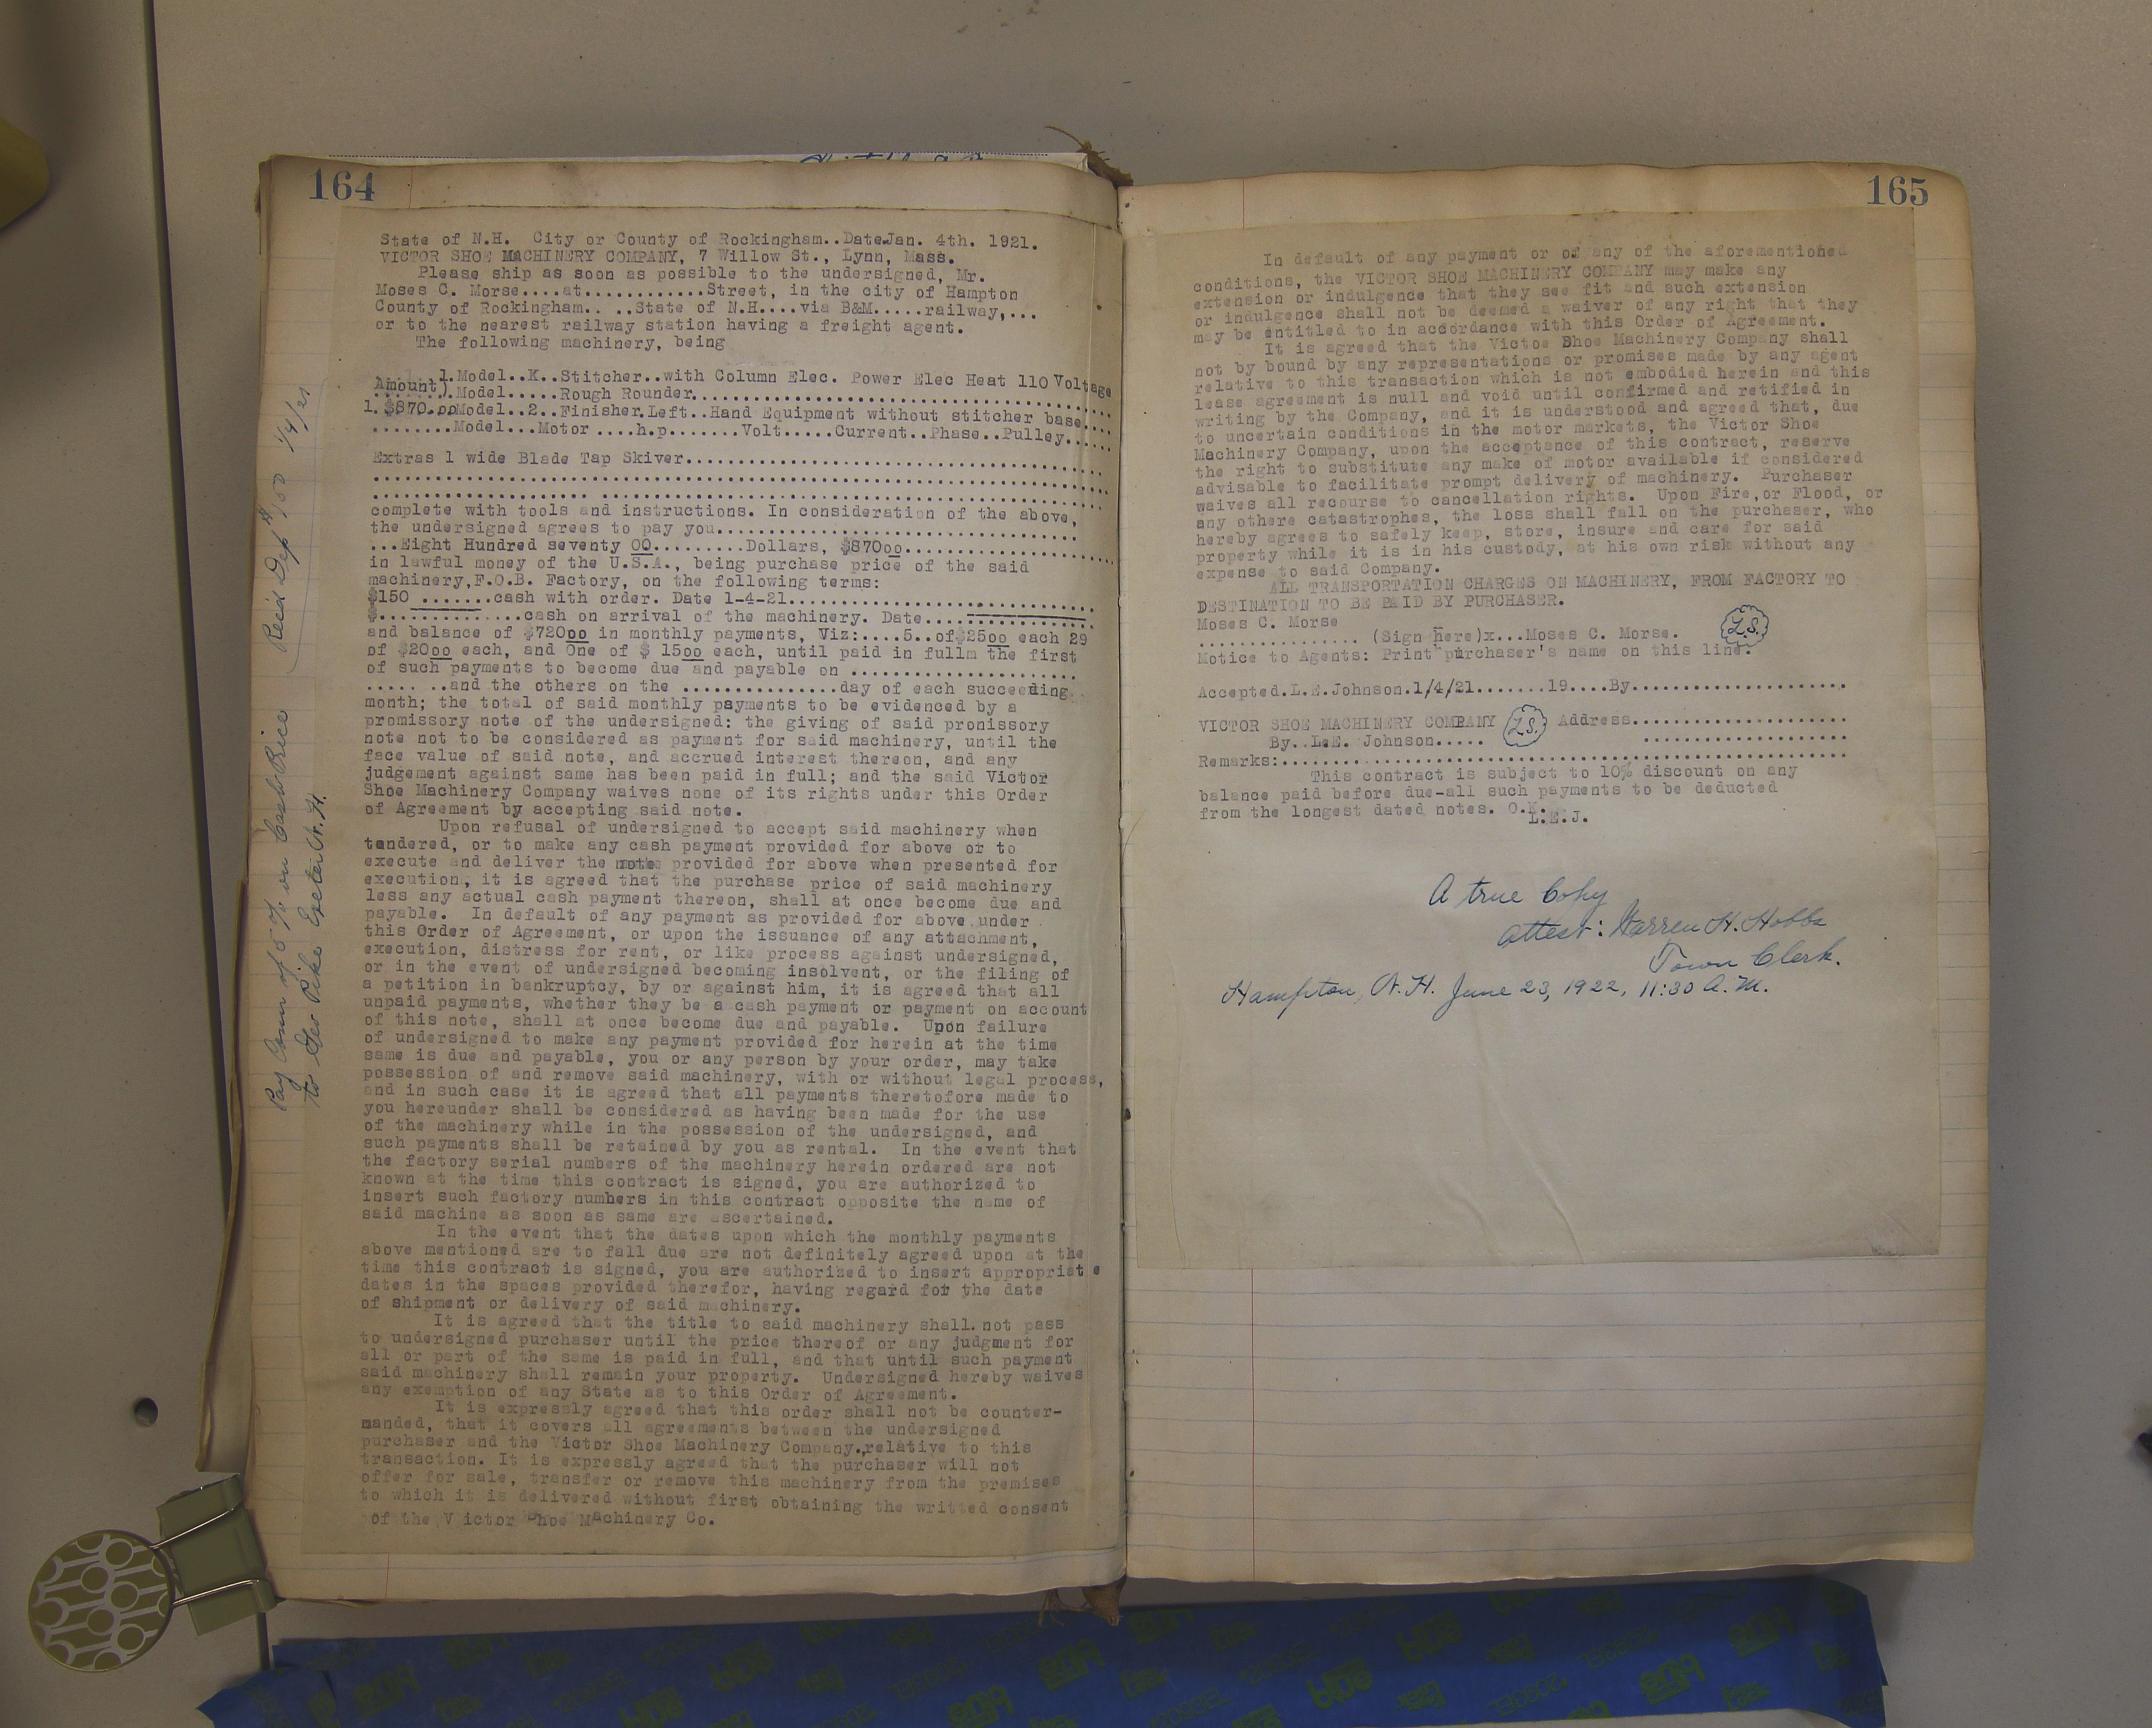 164
State of N.H. City or County of Rockingham..Date.Jan. 4th. 1921.
VICTOR SHOE MACHINERY COMPANY, 7 Willow St., Lynn, Mass.
Please ship as soon as possible to the undersigned, Mr.
Moses C. Morse....at............Street, in the city of Hampton
County of Rockingham.. ..State of N.H....via B&M.....railway,...
or to the nearest railway station having a freight agent.
The following machinery, being
1.Model..K..Stitcher..with Column Elec. Power Elec Heat 110 Voltage
Amount).Model.....Rough Rounder..........................................
1.$870.ooModel..2..Finisher.Left..Hand Equipment without stitcher base....
........Model...Motor ....h.p.......Volt.....Current..Phase..Pulley......
Extras 1 wide Blade Tap Skiver..........................................
........................................................................
........................................................................
complete with tools and instructions. In consideration of the above,
the undersigned agrees to pay you....................................
...Eight Hundred seventy 00.........Dollars, $870oo....................
in lawful money of the U.S.A., being purchase price of the said
machinery,F.O.B. Factory, on the following terms:
$150 .......cash with order. Date 1-4-21..............................
$..............cash on arrival of the machinery. Date.................
and balance of $720oo in monthly payments, Viz:....5..of$25oo each 29
of $20oo each, and One of $ 15oo each, until paid in fullm the first
of such payments to become due and payable on ......................
..... ..and the others on the ...............day of each succeeding
month; the total of said monthly payments to be evidenced by a
promissory note of the undersigned: the giving of said pronissory
note not to be considered as payment for said machinery, until the
face value of said note, and accrued interest thereon, and any
judgement against same has been paid in full; and the said Victor
Shoe Machinery Company waives none of its rights under this Order
of Agreement by accepting said note.
Upon refusal of undersigned to accept said machinery when
tendered, or to make any cash payment provided for above or to
execute and deliver the note provided for above when presented for
execution, it is agreed that the purchase price of said machinery
less any actual cash payment thereon, shall at once become due and
payable. In default of any payment as provided for above under
this Order of Agreement, or upon the issuance of any attachment,
execution, distress for rent, or like process against undersigned,
or in the event of undersigned becoming insolvent, or the filing of
a petition in bankruptcy, by or against him, it is agreed that all
unpaid payments, whether they be a cash payment or payment on account
of this note, shall at once become due and payable. Upon failure
of undersigned to make any payment provided for herein at the time
same is due and payable, you or any person by your order, may take
possession of and remove said machinery, with or without legal process,
and in such case it is agreed that all payments theretofore made to
you hereunder shall be considered as having been made for the use
of the machinery while in the possession of the undersigned, and
such payments shall be retained by you as rental. In the event that
the factory serial numbers of the machinery herein ordered are not
known at the time this contract is signed, you are authorized to
insert such factory numbers in this contract opposite the name of
said machine as soon as same are ascertained.
In the event that the dates upon which the monthly payments
above mentioned are to fall due are not definitely agreed upon at the
time this contract is signed, you are authorized to insert appropriate
dates in the spaces provided therefor, having regard for the date
of shipment or delivery of said machinery.
It is agreed that the title to said machinery shall.not pass
to undersigned purchaser until the price thereof or any judgment for
all or part of the same is paid in full, and that until such payment
said machinery shall remain your property. Undersigned hereby waives
any exemption of any State as to this Order of Agreement.
It is expressly agreed that this order shall not be counter-
manded, that it covers all agreements between the undersigned
purchaser and the Victor Shoe Machinery Company.,relative to this
transaction. It is expressly agreed that the purchaser will not
offer for sale, transfer or remove this machinery from the premises
to which it is delivered without first obtaining the writted consent
of the Victor Shoe Machinery Co.
Rec'd Dep $150 1/4/21
Pay Comm of 5% on Cash Price
to Geo Pike Exeter N.H.
165
In default of any payment or of any of the aforementioned
conditions, the VICTOR SHOE MACHINERY COMPANY may make any
extension or indulgence that they see fit and such extension
or indulgence shall not be deemed a waiver of any right that they
may be entitled to in accordance with this Order of Agreement.
It is agreed that the Victoe Shoe Machinery Company shall
not by bound by any representations or promises made by any agent
relative to this transaction which is not embodied herein and this
lease agreement is null and void until confirmed and retified in
writing by the Company, and it is understood and agreed that, due
to uncertain conditions in the motor markets, the Victor Shoe
Machinery Company, upon the acceptance of this contract, reserve
the right to substitute any make of motor available if considered
advisable to facilitate prompt delivery of machinery. Purchaser
waives all recourse to cancellation rights. Upon Fire,or Flood, or
any othere catastrophes, the loss shall fall on the purchaser, who
hereby agrees to safely keep, store, insure and care for said
property while it is in his custody, at his own risk without any
expense to said Company.
ALL TRANSPORTATION CHARGES ON MACHINERY, FROM FACTORY TO
DESTINATION TO BE PAID BY PURCHASER.
Moses C. Morse
............... (Sign here)x...Moses C. Morse. L.S.
Notice to Agents: Print purchaser's name on this line.
Accepted.L.E.Johnson.1/4/21.......19....By........................
VICTOR SHOE MACHINERY COMPANY L.S. Address......................
By..L.E. Johnson..... ....................
Remarks:..........................................................
This contract is subject to 10% discount on any
balance paid before due-all such payments to be deducted
from the longest dated notes. O.K.
L.E.J.
A true Copy
Attest: Warren H. Hobbs
Town Clerk.
Hampton, N.H. June 23, 1922, 11:30 A.M.